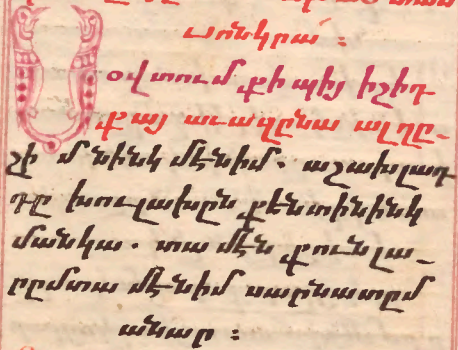 Սօվտում քի պիյ իշիդ-
քայ աւազընա ալղը-
շի մ նինկ մէնիմ. աշախլադ
դը խուլախըն քէնտինինկ
մանկա. տա մէն քունլա-
րըմտա մէնիմ սարընատըմ
անար :